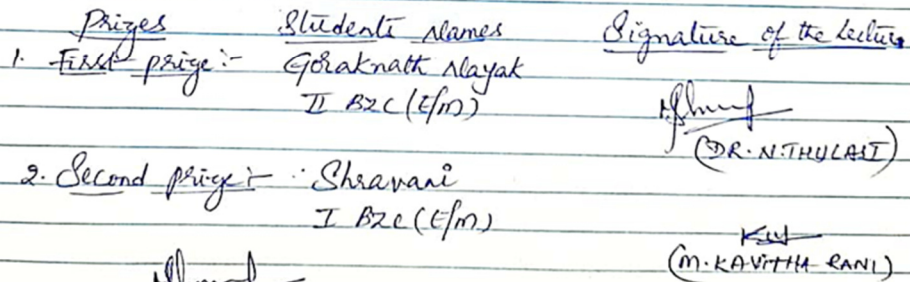 Prizes Students Names Signature of the Lecture
1. First prize:- Goraknath Nayak
II BZC (E/M)
(DR. N. THULASI)
2. Second prize:- Shravani
I BZC (E/M)
(M. KAVITHA RANI)